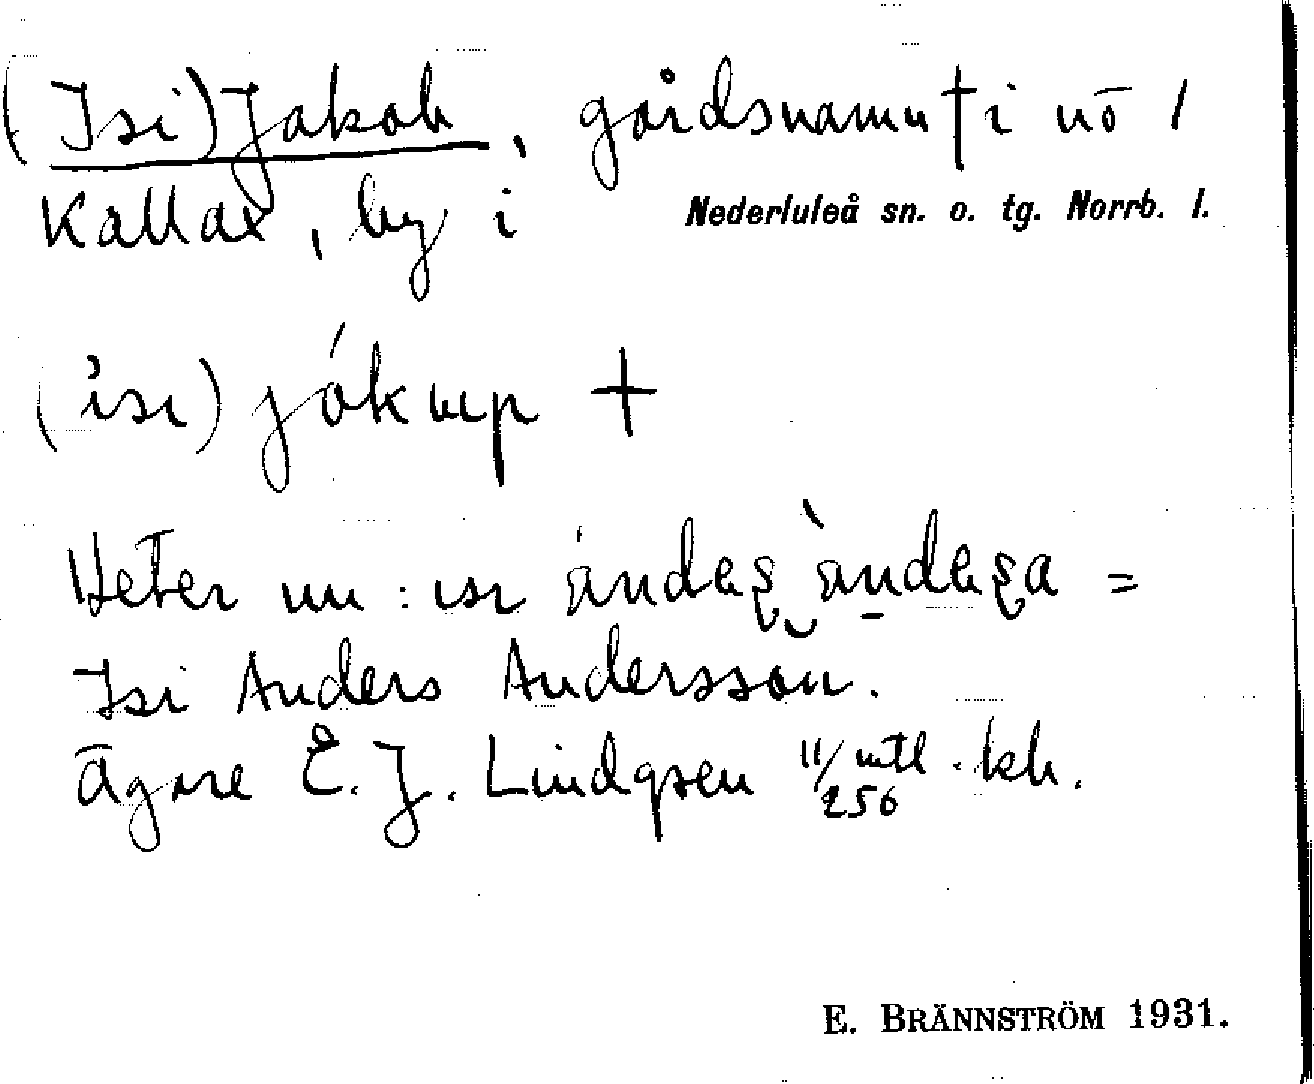 (Isi) Jakob, gårdsnamn † i nö /
Kallax, by i Nederluleå sn. o. tg. Norrb. l.
(isı) jákup +
Heter nu: ısı andeʂ andeʂa =
Isi Anders Andersson.
ägare E. J. Lindgren 11/256 mtl. kh.
E. BRÄNNSTRÖM 1931.